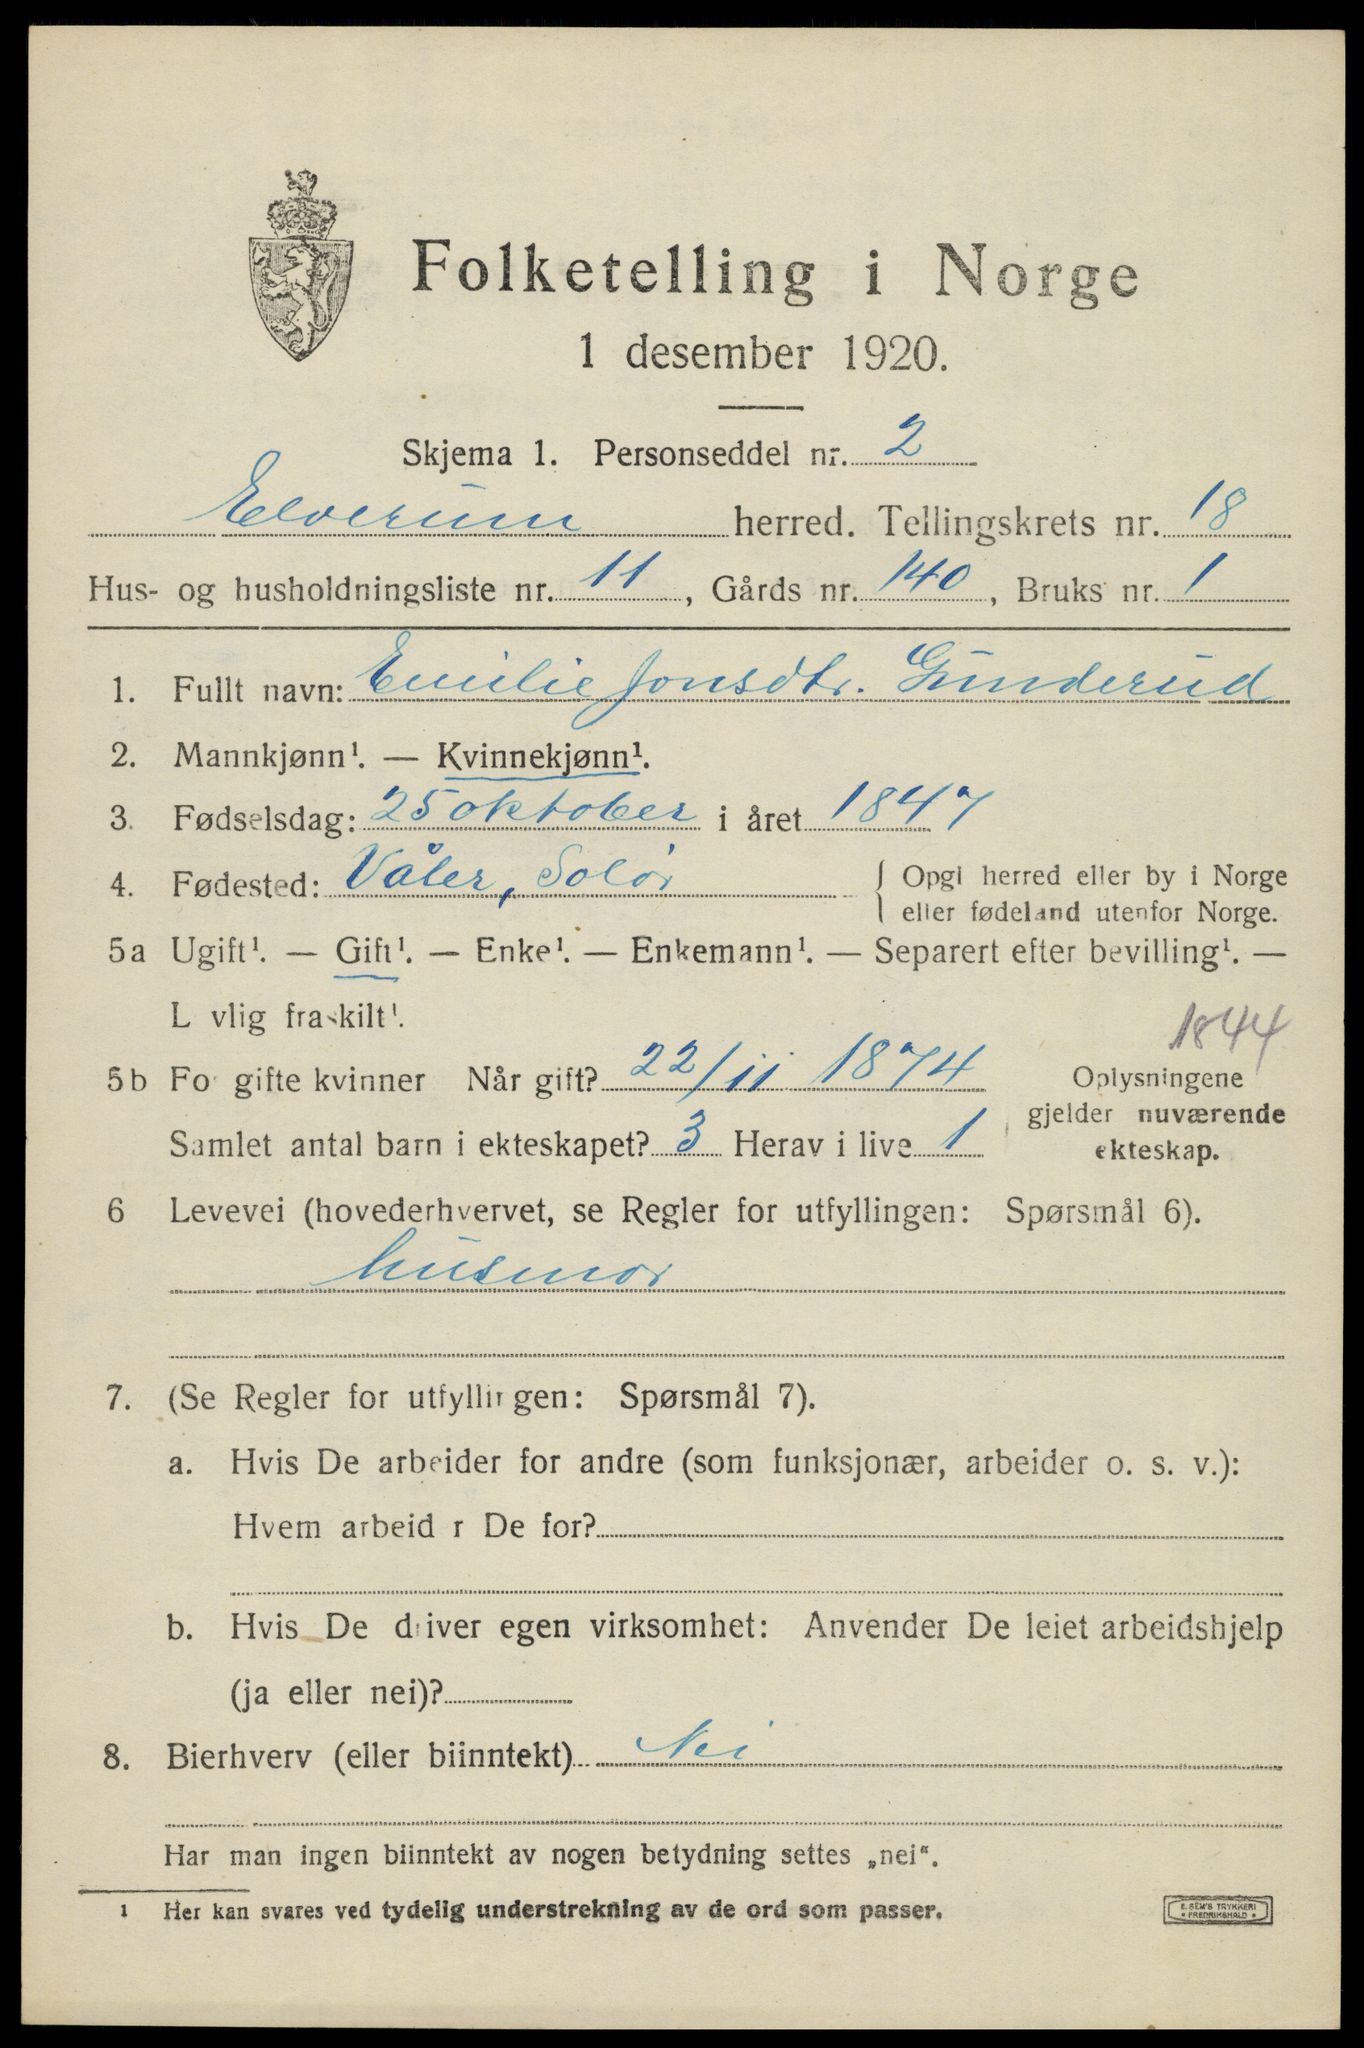 Folketelling i Norge
1 desember 1920.
Skjema 1. Personseddel nr. 2
Elverum herred. Tellingskrets nr. 18
Hus- og husholdningsliste nr. 11, Gårds nr. 140, Bruks nr. 1
1. Fullt navn: Emilie Jonsdtr. Gunderud
2. Mannkjønn¹. — Kvinnekjønn¹.
3. Fødselsdag: 25 oktober i året 1847
4. Fødested: Våler, Solør { Opgi herred eller by i Norge
eller fødeland utenfor Norge.
5a Ugift¹. — Gift¹. — Enke¹. — Enkemann¹. — Separert efter bevilling¹. —
L vlig fraskilt¹.
1844
5b Fo gifte kvinner Når gift? 22/11 1874 Oplysningene
gjelder nuværende
Samlet antal barn i ekteskapet? 3 Herav i live 1 ekteskap.
6 Levevei (hovederhvervet, se Regler for utfyllingen: Spørsmål 6).
husmor
7. (Se Regler for utfyllingen: Spørsmål 7).
a. Hvis De arbeider for andre (som funksjonær, arbeider o. s. v.):
Hvem arbeid r De for?
b. Hvis De driver egen virksomhet: Anvender De leiet arbeidshjelp
(ja eller nei)?
8. Bierhverv (eller biinntekt) Nei
Har man ingen biinntekt av nogen betydning settes „nei“.
1 Her kan svares ved tydelig understrekning av de ord som passer.
E. SEM'S TRYKKERI
• FREDRIKSHALD •